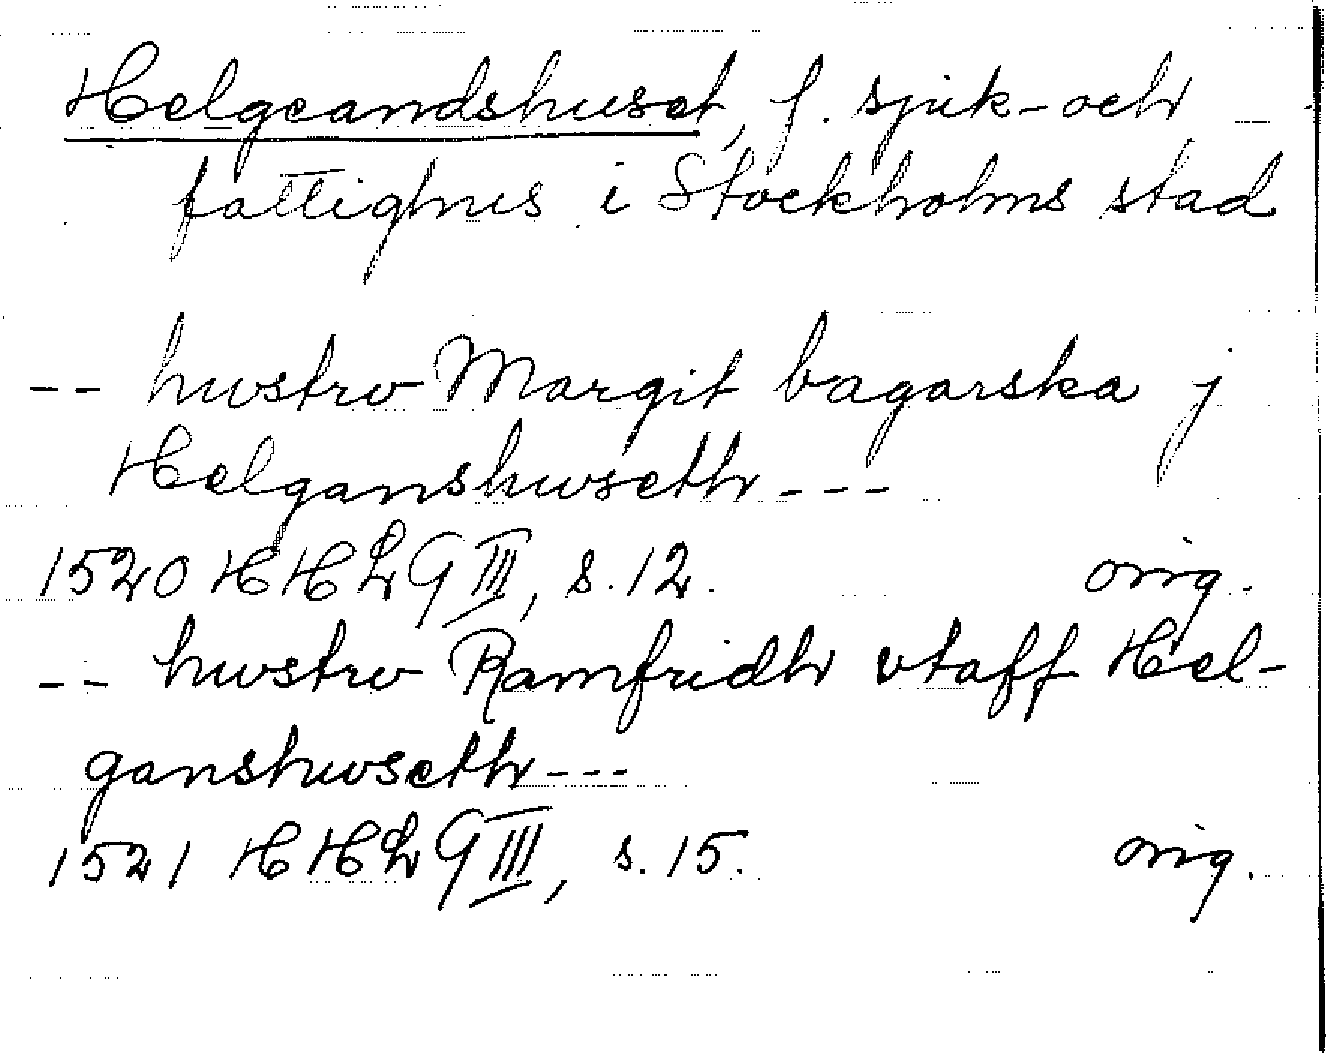 Helgeandshuset, f. sjuk- och
fattighus i Stockholms stad
-- hustrv Margit bagarska j
Helganshwseth ---
1520 HHLG III, s. 12. orig.
-- hwstrv Ramfridh vtaff Hel-
ganshwseth ---
1521 HHLG III, s. 15. orig.